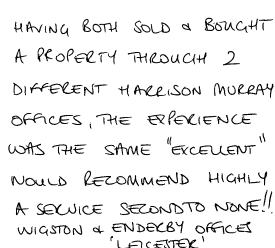 HAVING BOTH SOLD & BOUGHT
A PROPERTY THROUGH 2
DIFFERENT HARRISON MURRAY
OFFICES, THE EXPERIENCE
WAS THE SAME "EXCELLENT"
WOULD RECOMMEND HIGHLY
A SERVICE SECOND TO NONE!!
WIGSTON & ENDERBY OFFICES
'LEICESTER'